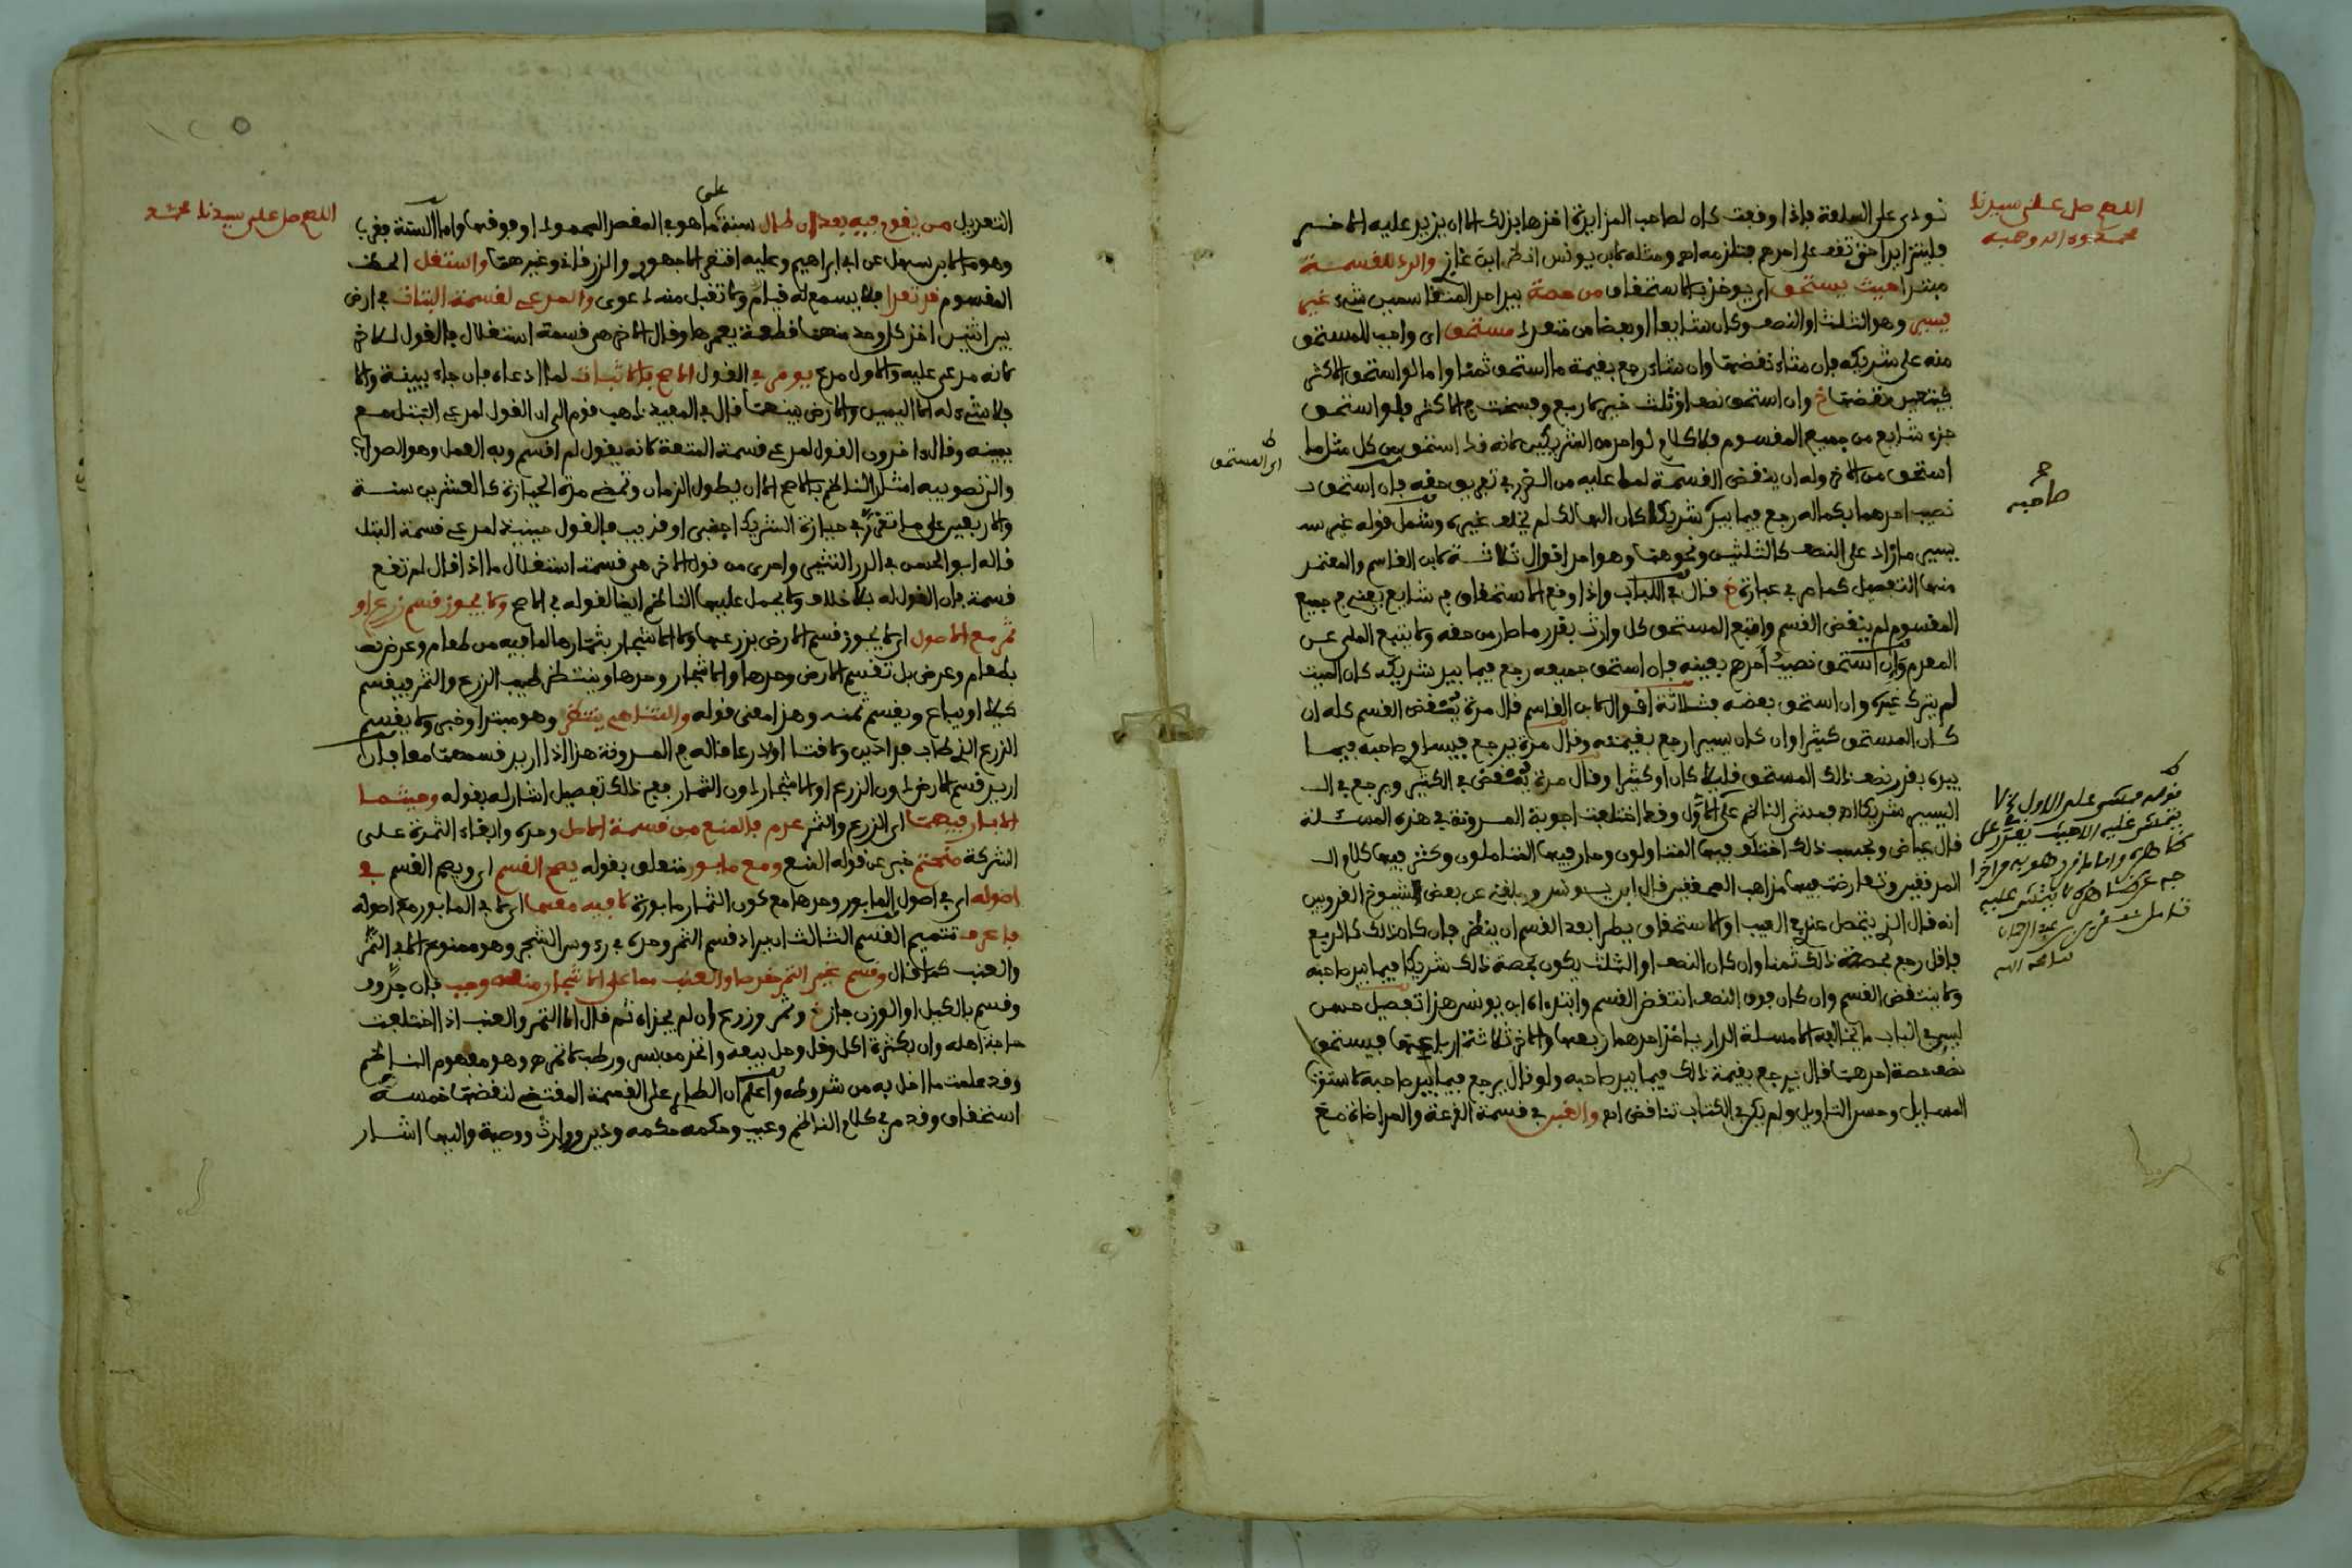 اللهم صل على سيدنا
محمد وءاله وصحبه
نودي على السلعة فإذا وقعت كان لصاحب المزايدة اخذها بذلك الا ان يزيد عليه الاخر
مبتدا حيث يستحق اي يوخذ بالاستحقاق من حصة بيد احد المتقاسمين شيء غير
يسير وهو الثلث او النصف وكان شايعا او بعضا من متعدد مستحق اي واجب للمستحق
منه على شريكه فان شاء نقضها وان شاء رجع بقيمة ما استحق ثمنا واما لو استحق الاكثر
فيتعين نقضها خ وان استحق نصف او ثلث خير لا ربع وفسخت في الاكثر فلو استحق
جزء شايع من جميع المقسوم فلا كلام لواحد من الشريكين لانه قد استحق من كل مثل ما
اي المستحق
استحق من الاخر وله ان ينقض القسمة لما عليه من الضرر في تفريق حقه فان استحق
صاحبه
نصيب احدهما بكماله رجع فيما بيد شريكه كان الهالك لم يخلف غيره وشمل قوله غير
يسير ما زاد على النصف كالثلثين ونحوهما وهو احد اقوال ثلاثة لابن القاسم والمعتمد
منها التفصيل كما مر في عبارة خ قال في اللباب واذا وقع الاستحقاق في شايع يعني في جميع
المقسوم لم ينقض القسم واتبع المستحق كل وارث بقدر ما صار من حقه ولا يتبع الملي عن
المعدم وان استحق نصيب احدهم بعينه فان استحق جميعه رجع فيما بيد شريكه كان الميت
لم يترك غيره وان استحق بعضه فثلاثة اقوال لابن القاسم قال مرة ينتقض القسم كله ان
كان المستحق كثيرا وان كان يسيرا رجع بقيمته وقال مرة يرجع فيساوي صاحبه فيما
بيده بقدر نصف ذلك المستحق قليلا كان او كثيرا وقال مرة ينتقض في الكثير ويرجع في
اليسير شريكا اه فمشى الناظم على الاول وقد اختلفت اجوبة المدونة في هذه المسئلة
قال عياض وبحسب ذلك اختلف فيها المتاولون وحار فيها المتاملون وكثر فيها كلام
المدققين وتعارضت فيها مذاهب المحققين قال ابن يونس وبلغني عن بعض شيوخ القرويين
انه قال الذي يتحصل عندي في العيب او الاستحقاق يطرا بعد القسم ان ينظر فان كان ذلك كالربع
فاقل رجع بحصة ذلك ثمنا وان كان النصف او الثلث يكون بحصة ذلك شريكا فيما بيد صاحبه
ولا ينتقض القسم وان كان فوق النصف انتقض القسم وابتدءاه ابن يونس هذا تفصيل حسن
ليس في الباب ما يخالفه الا مسئلة الدار ياخذ احدهما ربعها والاخر ثلاثة ارباعها فيستحق
نصف حصة احدهما قال يرجع بقيمة ذلك فيما بيد صاحبه ولو قال يرجع فيما بيد صاحبه لاستوت
المسايل وحسن التاويل ولم يكن في الكتاب تناقض اه والغبن في قسمة القرعة والمراضاة مع
اللهم صل على سيدنا محمد
التعديل من يقوم فيه بعد ان طال سنة على ما هو في المقصد المحمود او فوقها واما السنة فقرب
وهو لابن سهل عن ابي ابراهيم وعليه اقتصر الاجهوري والزرقاني وغيرهما واستغل الحظ
المقسوم قد تعدا فلا يسمع له قيام ولا تقبل منه دعوى والمدعي لقسمة البتات في ارض
بين اثنين اخذ كل واحد منهما قطعة يعمرها وقال الاخر هي قسمة استغلال فالقول للاخر
لانه مدعى عليه والاول مدع يومر في القول الاصح بالاثبات لما ادعاه فان جاء ببينة والا
فلا شيء له الا اليمين والارض بينهما قال في المفيد ذهب قوم الى ان القول لمدعي البتل مع
يمينه وقال ءاخرون القول لمدعي قسمة المتعة لانه يقول لم اقسم وبه العمل وهو الصواب
والارض بعين على ما تقرر في حيازة الشريك اجنبي او قريب فالقول حينيذ لمدعي قسمة البتل
قاله ابو الحسن في الدر النثير واحرى من قول الاخر هي قسمة استغلال ما اذا قال لم تقع
قسمة فان القول له بلا خلاف ولا يحمل عليها الناظم ايضا لقوله في الاصح ولا يجوز قسم زرع او
ثمر مع الاصول اي لا يجوز قسم الارض بزرعها ولا الاشجار بثمارها لما فيه من طعام وعرض
بطعام وعرض بل تقسم الارض وحدها والاشجار وحدها وينتظر طيب الزرع والثمر فيقسم
كيلا او يباع ويقسم ثمنه وهذا معنى قوله والتناهي ينتظر وهو مبتدا وخبر ولا يقسم
الزرع الذي طاب فدادين ولا قتا او اذرعا قاله في المدونة هذا اذا اريد قسمهما معا فان
اريد قسم الارض دون الزرع او الاشجار دون الثمار ففي ذلك تفصيل اشار له بقوله وحيثما
الابار فيهما اي الزرع والثمر عدم فالمنع من قسمة الاصل وحده وابقاء الثمرة على
الشركة منحتم خبر عن قوله المنع ومع مابور متعلق بقوله يصح القسم اي ويصح القسم في
اصوله اي في اصول المابور وحدها مع كون الثمار مابورة لا فيه معها اي لا في المابور مع اصوله
فاعرف تتميم القسم الثالث ايراد قسم الثمر وحده في رءوس الشجر وهو ممنوع الا في التمر
والعنب كما قال وقسم غير التمر خرصا والعنب مما على الاشجار منعه وجب فان جذوه
وقسم بالكيل او الوزن جاز خ وثمر وزرع ان لم يجذاه ثم قال الا التمر والعنب اذا اختلفت
حاجة اهله وان بكثرة اكل وقل وحل بيعه واتحد من بسر ورطب لا تمر اه وهو مفهوم الناظم
وقد علمت ما اخل به من شروطه واعلم ان الطاري على القسمة المقتضي لنقضها خمسة
استحقاق وقد مر في كلام الناظم وعيب وحكمه حكمه ودين ووارث ووصية واليها اشار